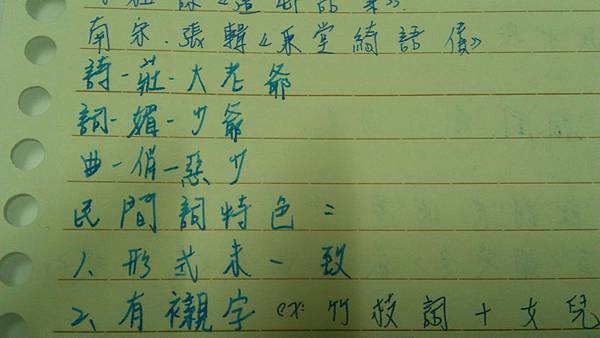 南宋.張輯《東堂綺語債》
詩-莊-大老爺
詞-媚-少爺
曲-俏-惡少
民間詞特色:
1、形式未一致
2、有襯字 ex:竹枝詞+女兒